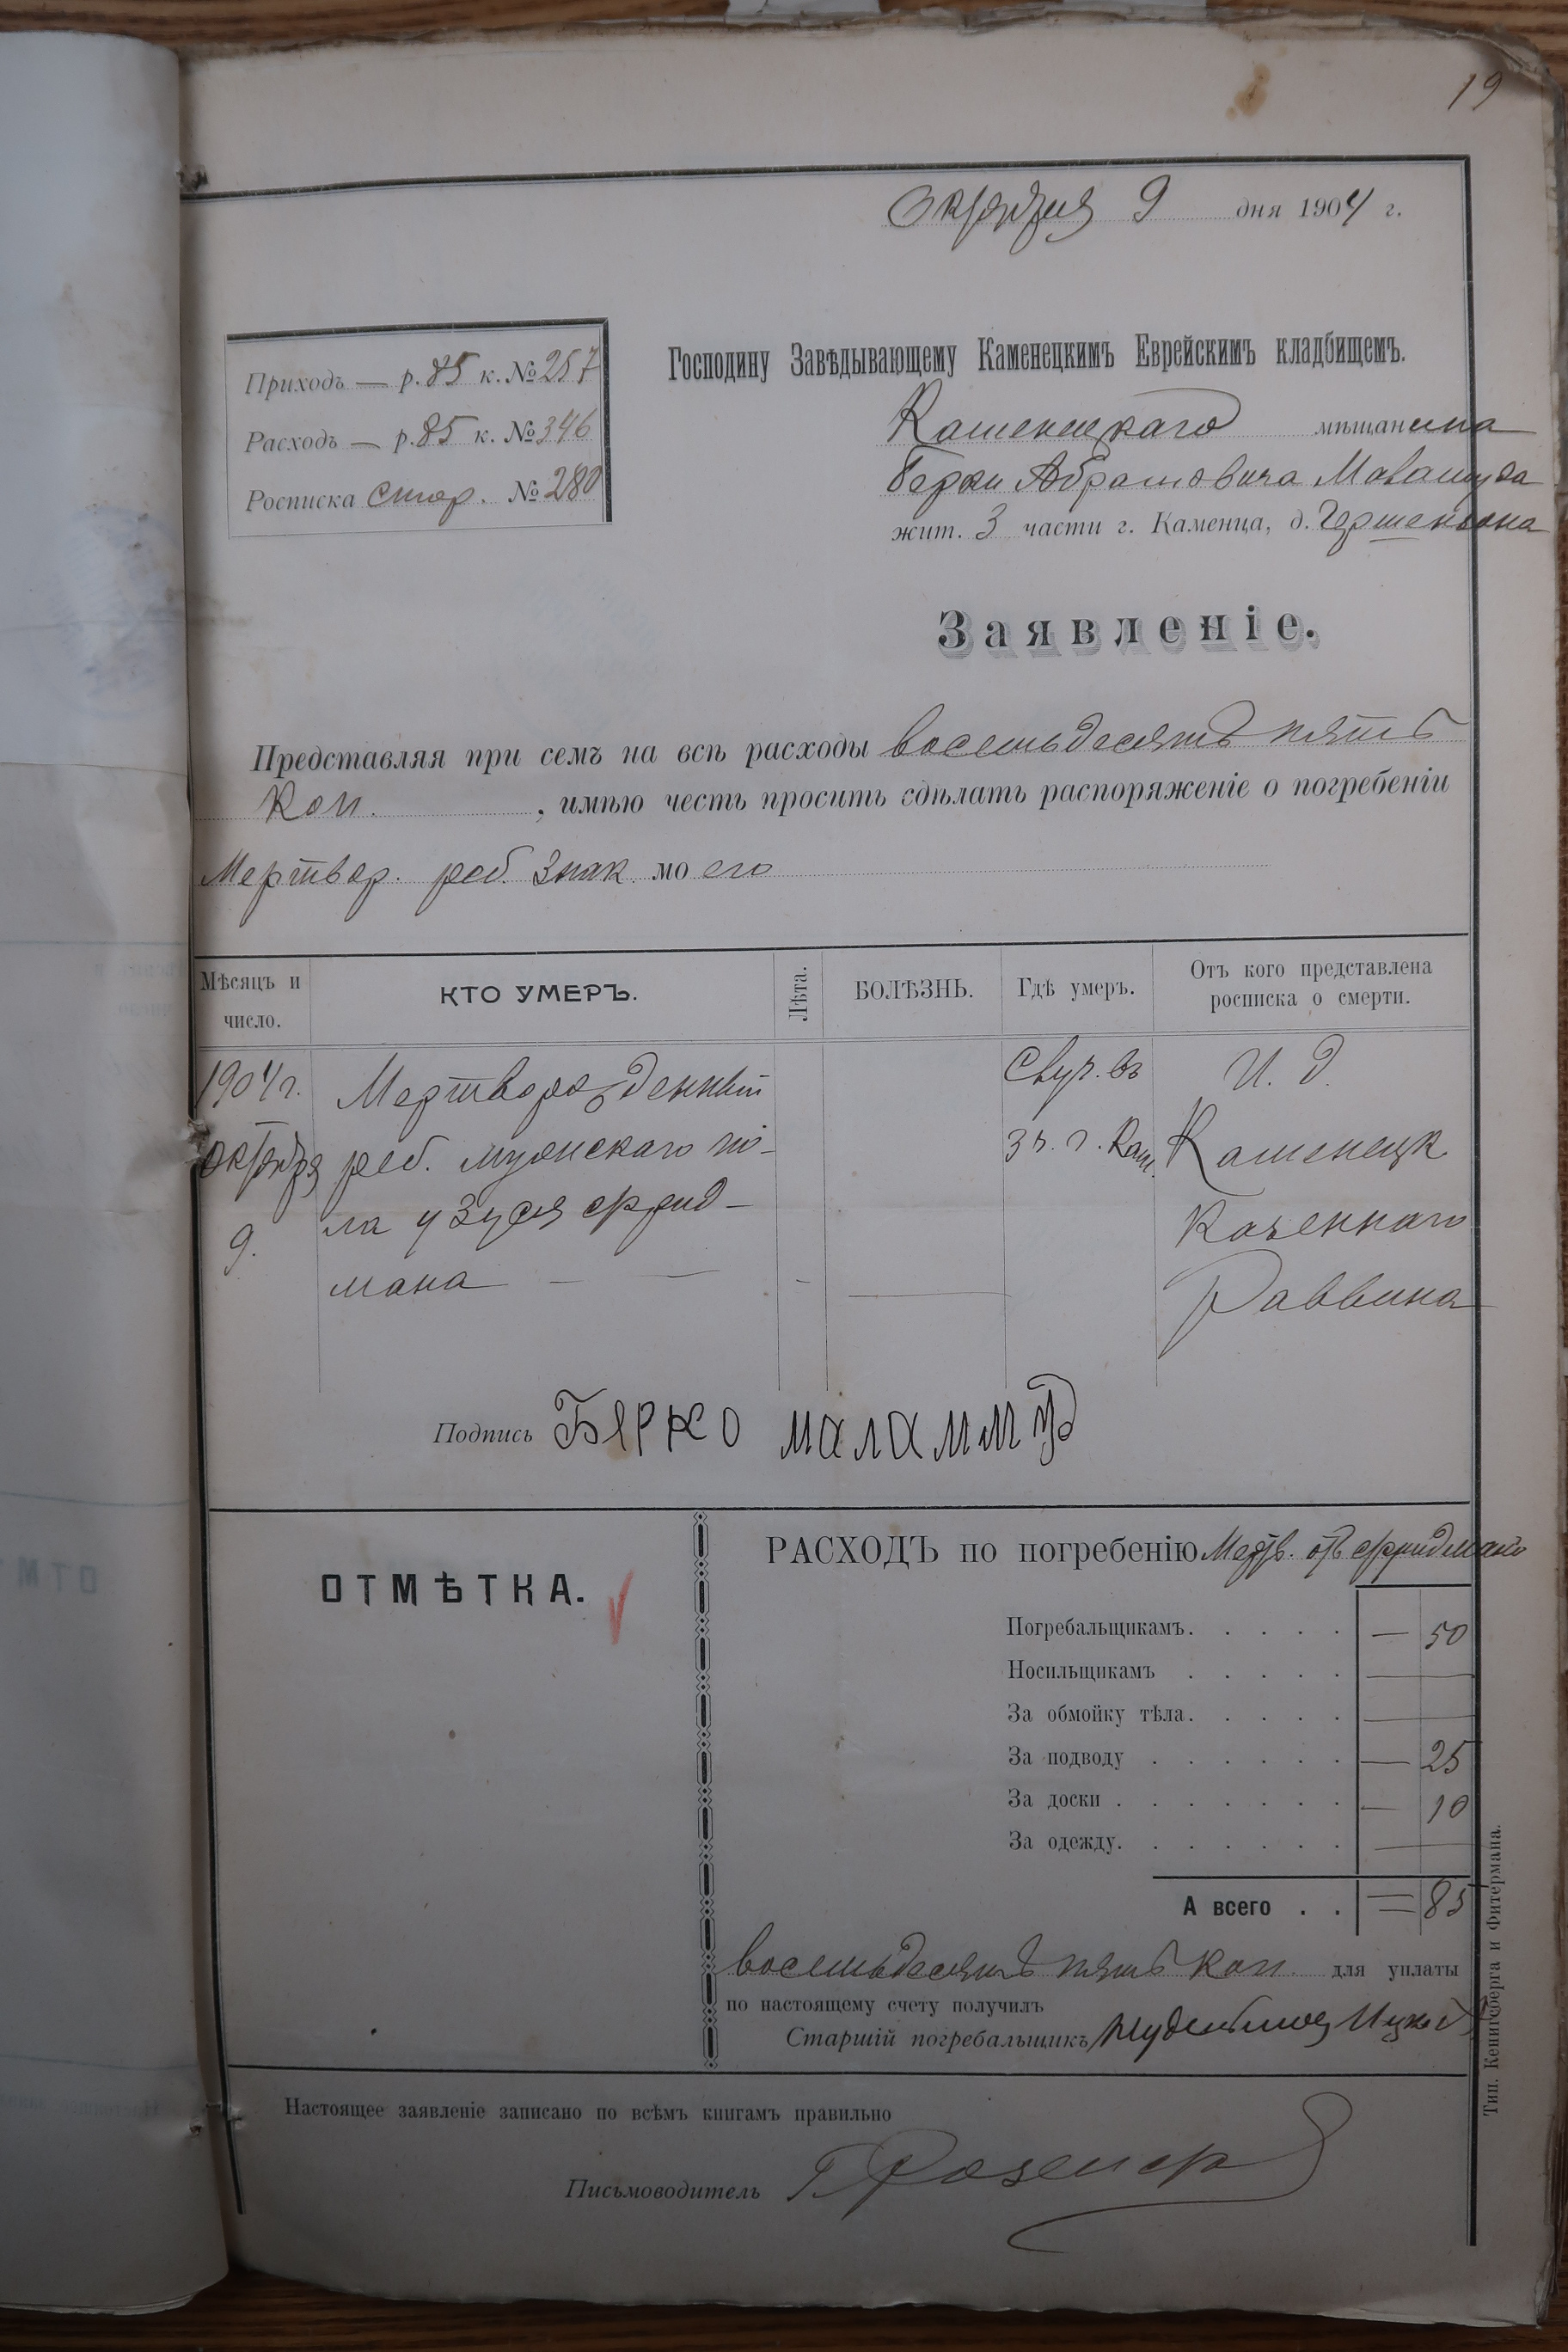 19
Октября 9 дня 1904 г.
Приходъ — р. 85 к. № 257
Расходъ — р. 85 к. № 346
Росписка стар. № 280
Господину Завѣдывающему Каменецкимъ Еврейскимъ кладбищемъ.
Каменецкаго мѣщанина
Берки Абрамовича
жит. 3 части г. Каменца, д. Гершензона
Заявленіе.
Представляя при семъ на всѣ расходы восемьдесятъ пять
коп. , имѣю честь просить сдѣлать распоряженіе о погребеніи
Мертвор. реб. знак. моего
Мѣсяцъ и число.
КТО УМЕРЪ.
Лѣта.
БОЛѢЗНЬ.
Гдѣ умеръ.
Отъ кого представлена росписка о смерти.
1904 г.
Октября
9.
Мертворожденный
реб. мужскаго по-
ла у Зуся Фрид-
мана — —
-
въ
3 ч. г. Кам.
И. д.
Каменецк
Казеннаго
Раввина
Подпись Бярко маламмуд
ОТМѢТКА.
РАСХОДЪ по погребенію Мертв. отъ Фридмана
Погребальщикамъ. . . . . — 50
Носильщикамъ . . . . . —
За обмойку тѣла. . . . . —
За подводу . . . . . . — 25
За доски . . . . . . . — 10
За одежду. . . . . . . —
А всего . . = 85
восемьдесятъ пять коп. для уплаты
по настоящему счету получилъ
Старшій погребальщикъ
Настоящее заявленіе записано по всѣмъ книгамъ правильно
Письмоводитель
Тип. Кенигсберга и Фитермана.